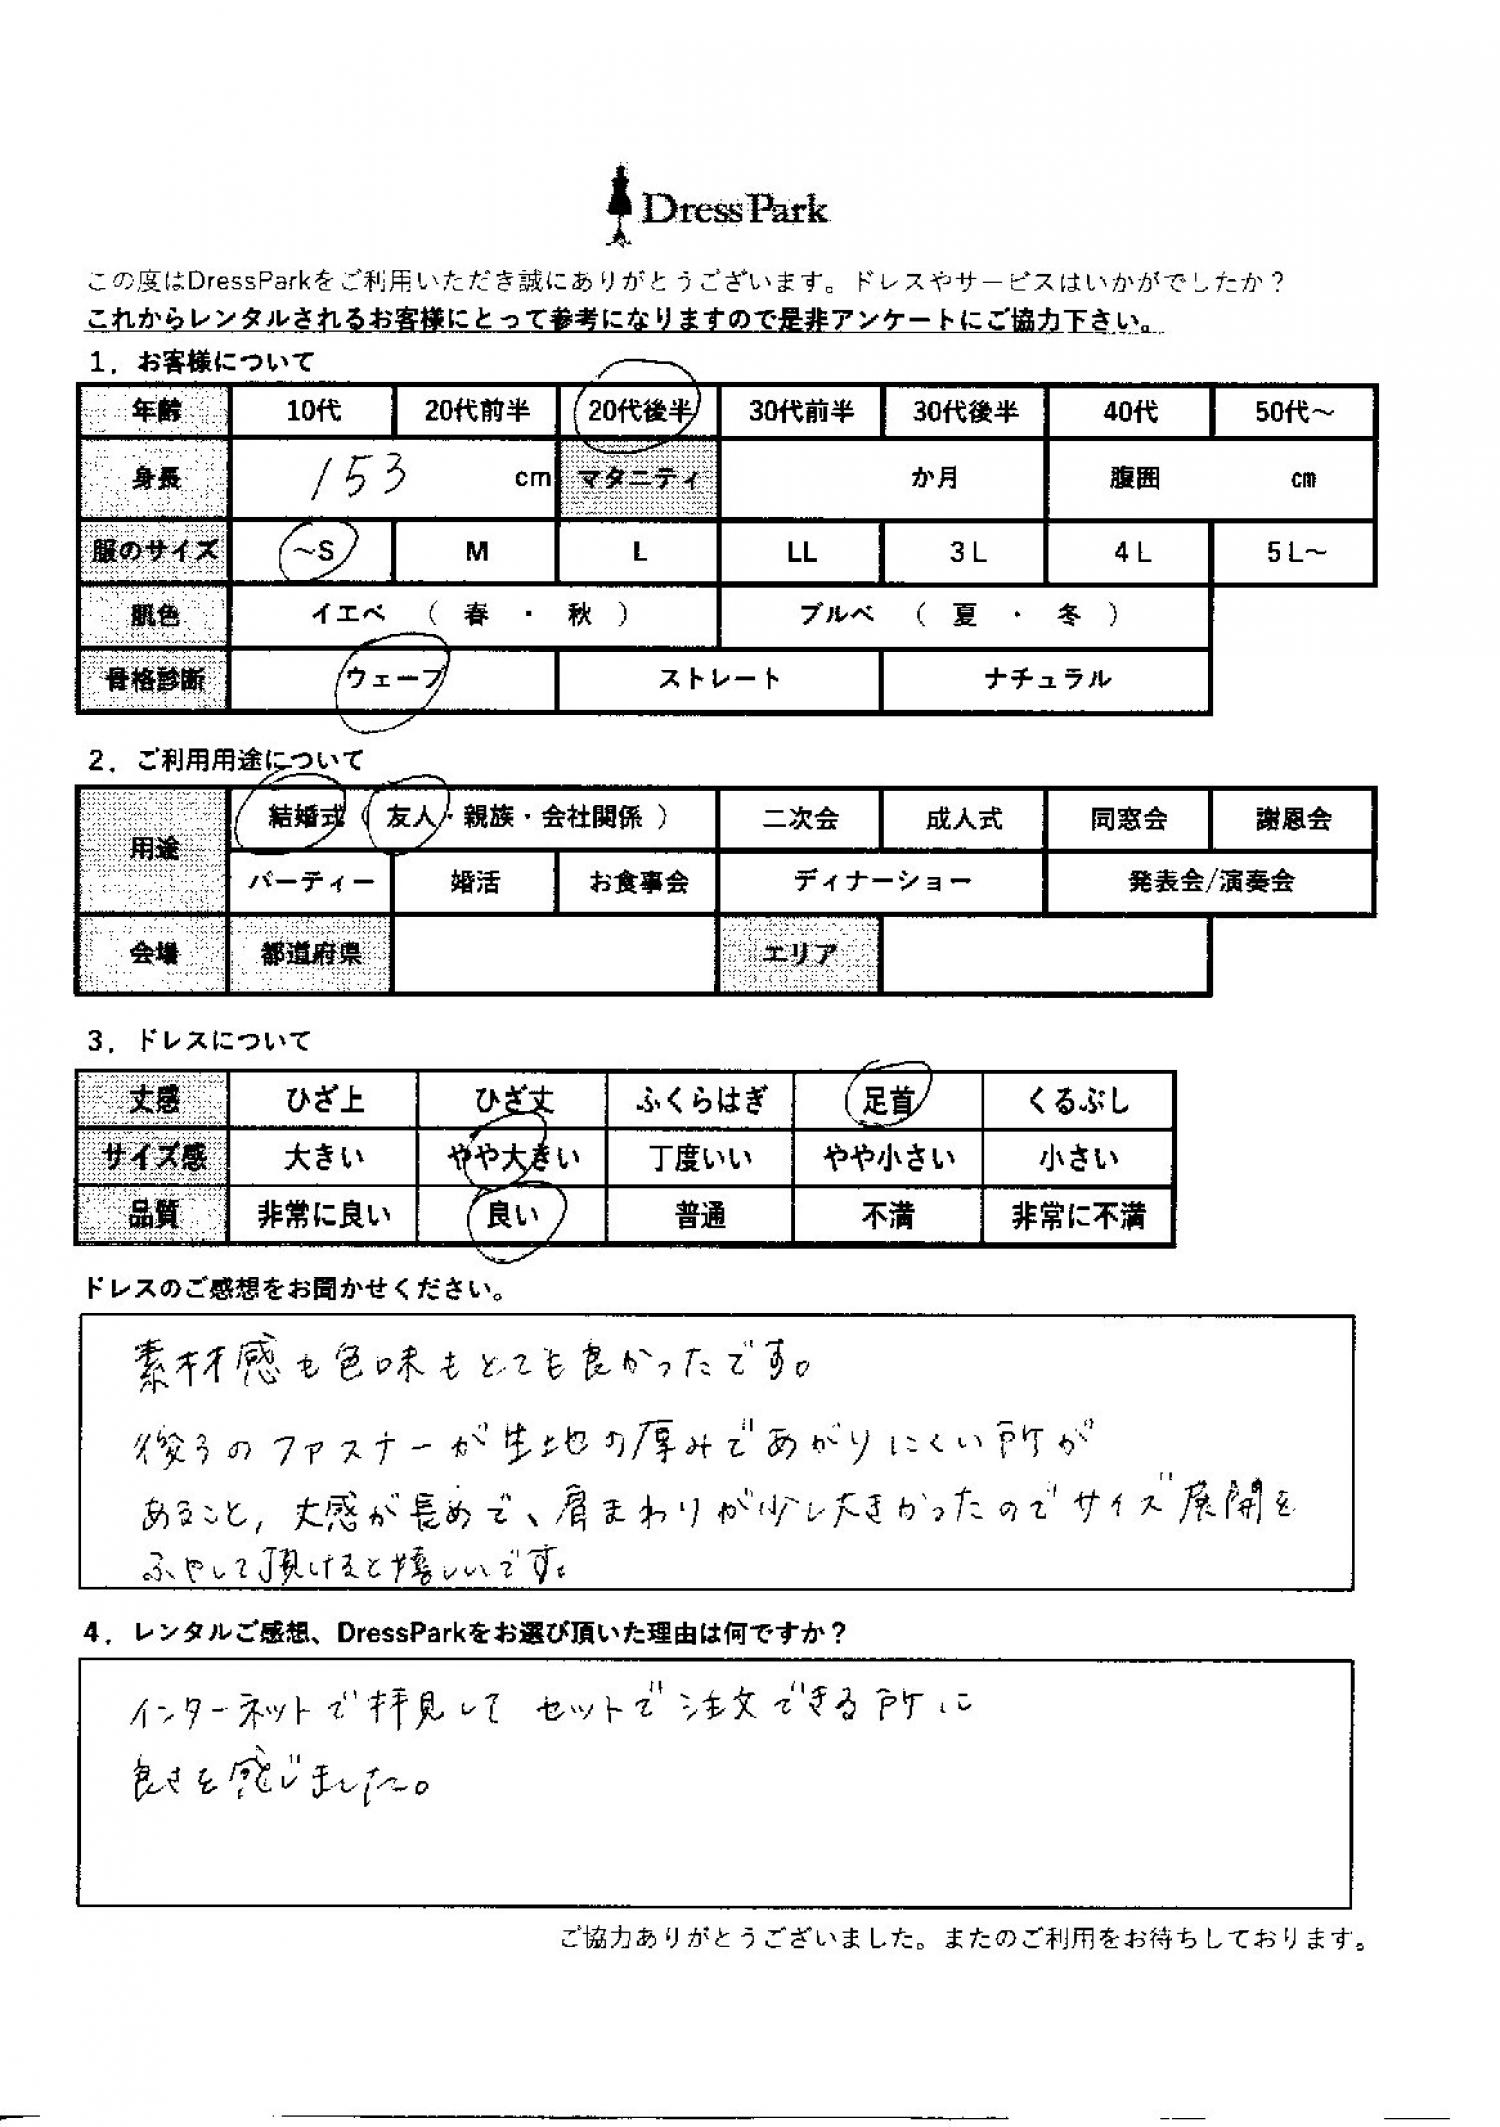 DressPark
この度はDressParkをご利用いただき誠にありがとうございます。ドレスやサービスはいかがでしたか？
これからレンタルされるお客様にとって参考になりますので是非アンケートにご協力下さい。
1．お客様について
年齢 10代 20代前半 20代後半 30代前半 30代後半 40代 50代～
身長 153 cm マタニティ か月 腹囲 cm
服のサイズ ～S M L LL 3L 4L 5L～
肌色 イエベ （ 春 ・ 秋 ） ブルベ （ 夏 ・ 冬 ）
骨格診断 ウェーブ ストレート ナチュラル
2．ご利用用途について
用途 結婚式（ 友人・親族・会社関係 ） 二次会 成人式 同窓会 謝恩会
パーティー 婚活 お食事会 ディナーショー 発表会/演奏会
会場 都道府県 エリア
3．ドレスについて
丈感 ひざ上 ひざ丈 ふくらはぎ 足首 くるぶし
サイズ感 大きい やや大きい 丁度いい やや小さい 小さい
品質 非常に良い 良い 普通 不満 非常に不満
ドレスのご感想をお聞かせください。
素材感も色味もとても良かったです。
後ろのファスナーが生地の厚みであがりにくい所が
あること, 丈感が長めで、肩まわりが少し大きかったのでサイズ展開を
ふやして頂けると嬉しいです。
4．レンタルご感想、DressParkをお選び頂いた理由は何ですか？
インターネットで拝見して セットで注文できる所に
良さを感じました。
ご協力ありがとうございました。またのご利用をお待ちしております。